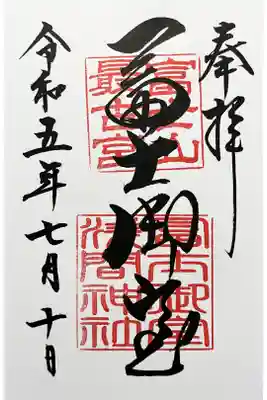 奉拝
冨士御室
富士山
最古宮
冨士御室
浅間神社
令和五年七月十日